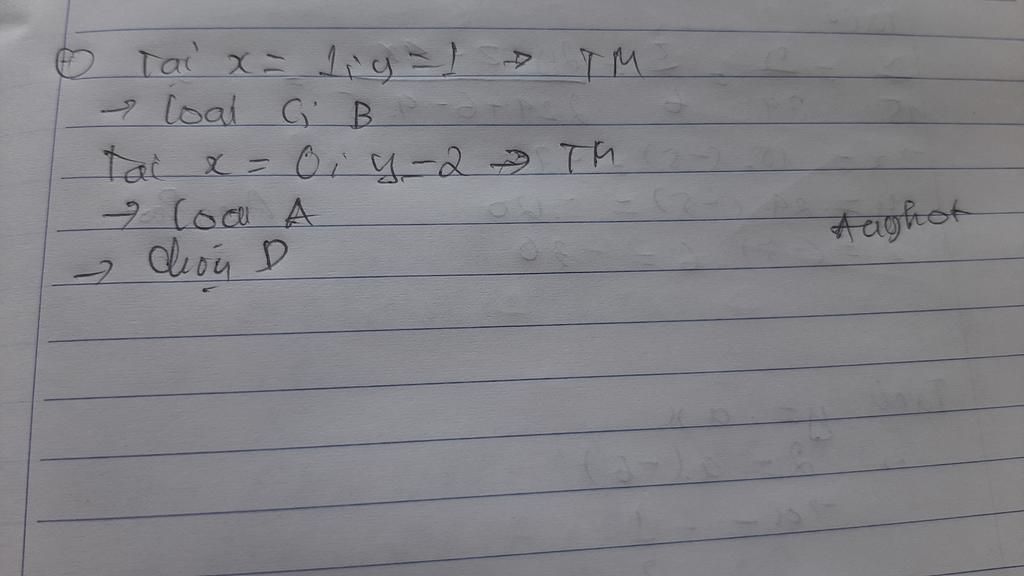 + Tại x = 1; y = 1 → TM
→ Loại C; B
Tại x = 0; y = 2 → TM
→ Loại A
Aaghot
→ Chọn D